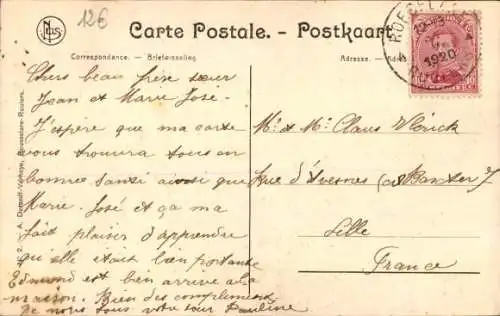 12€
Carte Postale. - Postkaart
Correspondance. — Briefwisseling
Adresse. —
ROESELARE
1920
Chers beau frère sœur
Jean et Marie José.
J'espère que ma carte
vous trouvera tous en
bonne santé ainsi que
Marie-José et ça ma
fait plaisir d'apprendre
qu'elle était bien portante
Edmond est bien arrivé a la
maison. Bien des compliments
De nous tous votre sœur Pauline
Mr et Mme Claus
Rue d'Avesnes
Lille
France